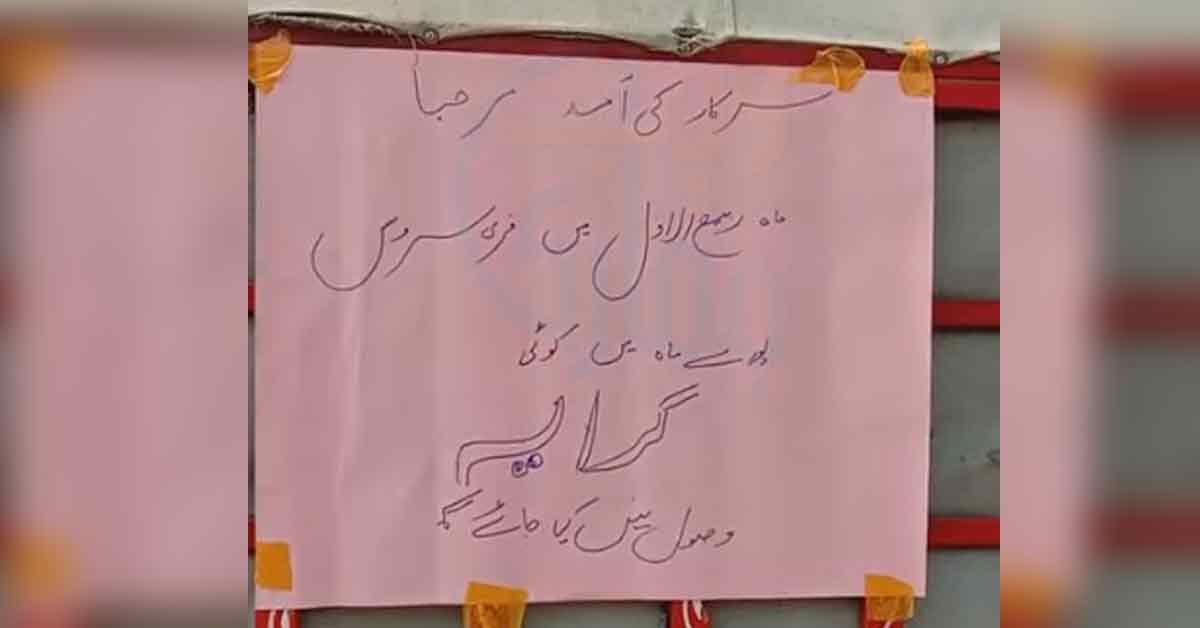 سرکار کی آمد مرحبا
ماہ ربیع الاول میں فری سروس
پورے ماہ میں کوئی
کرایہ
وصول نہیں کیا جائے گا